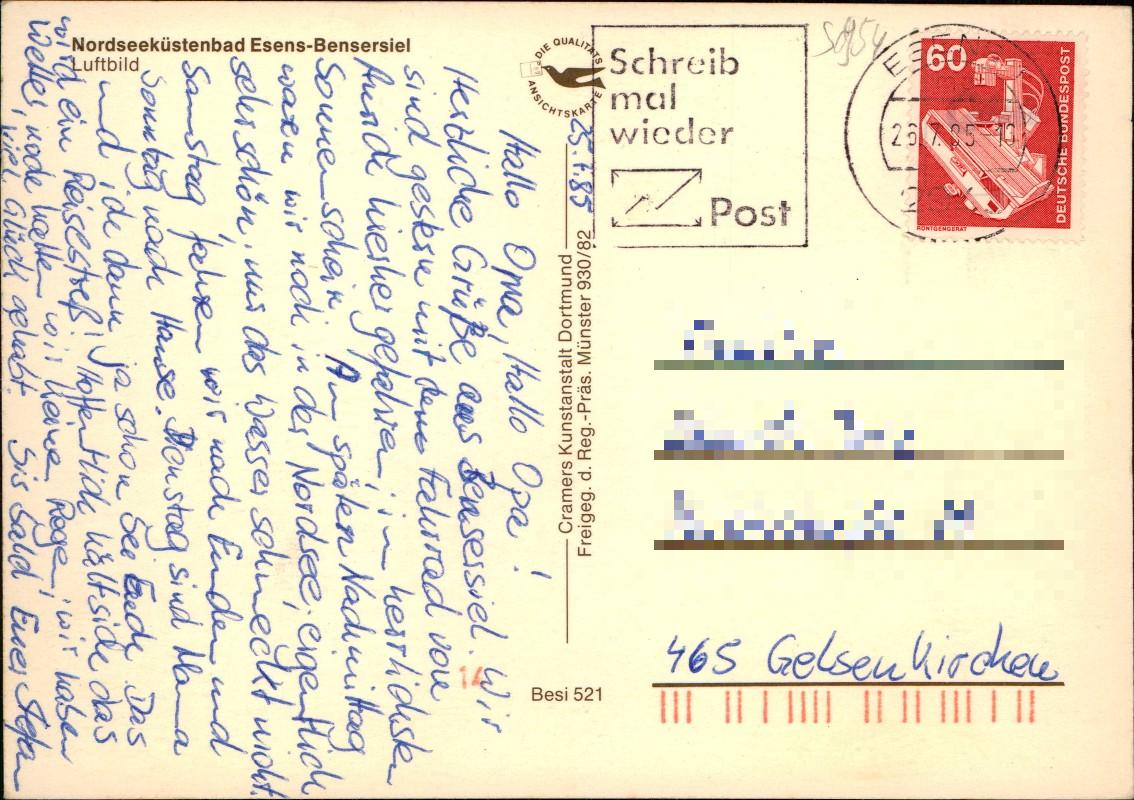 Nordseeküstenbad Esens-Bensersiel
Luftbild
DIE QUALITÄTS
ANSICHTSKARTE
Schreib
mal
wieder
Post
ESENS
26.7.85
60
DEUTSCHE BUNDESPOST
RÖNTGENGERÄT
25.7.85
Hallo Oma, Hallo Opa!
Herzliche Grüße aus Bensersiel. Wir
sind gestern mit dem Fahrrad von
Aurich hierher gefahren, im herrlichsten
Sonnenschein. Am späten Nachmittag
waren wir noch in der Nordsee, eigentlich
sehr schön, nur das Wasser schmeckt nicht.
Samstag fahren wir nach Emden und
Sonntag nach Hause. Dienstag sind Mama
und ich dann ja schon Ende. Das
wird ein Reisestreß! Hoffentlich hält sich das
Wetter, noch hatten wir keinen Regen, wir haben
viel Glück gehabt. Bis bald Euer Stefan
Cramers Kunstanstalt Dortmund
Freigeg. d. Reg.-Präs. Münster 930/82
14
Besi 521
465 Gelsenkirchen